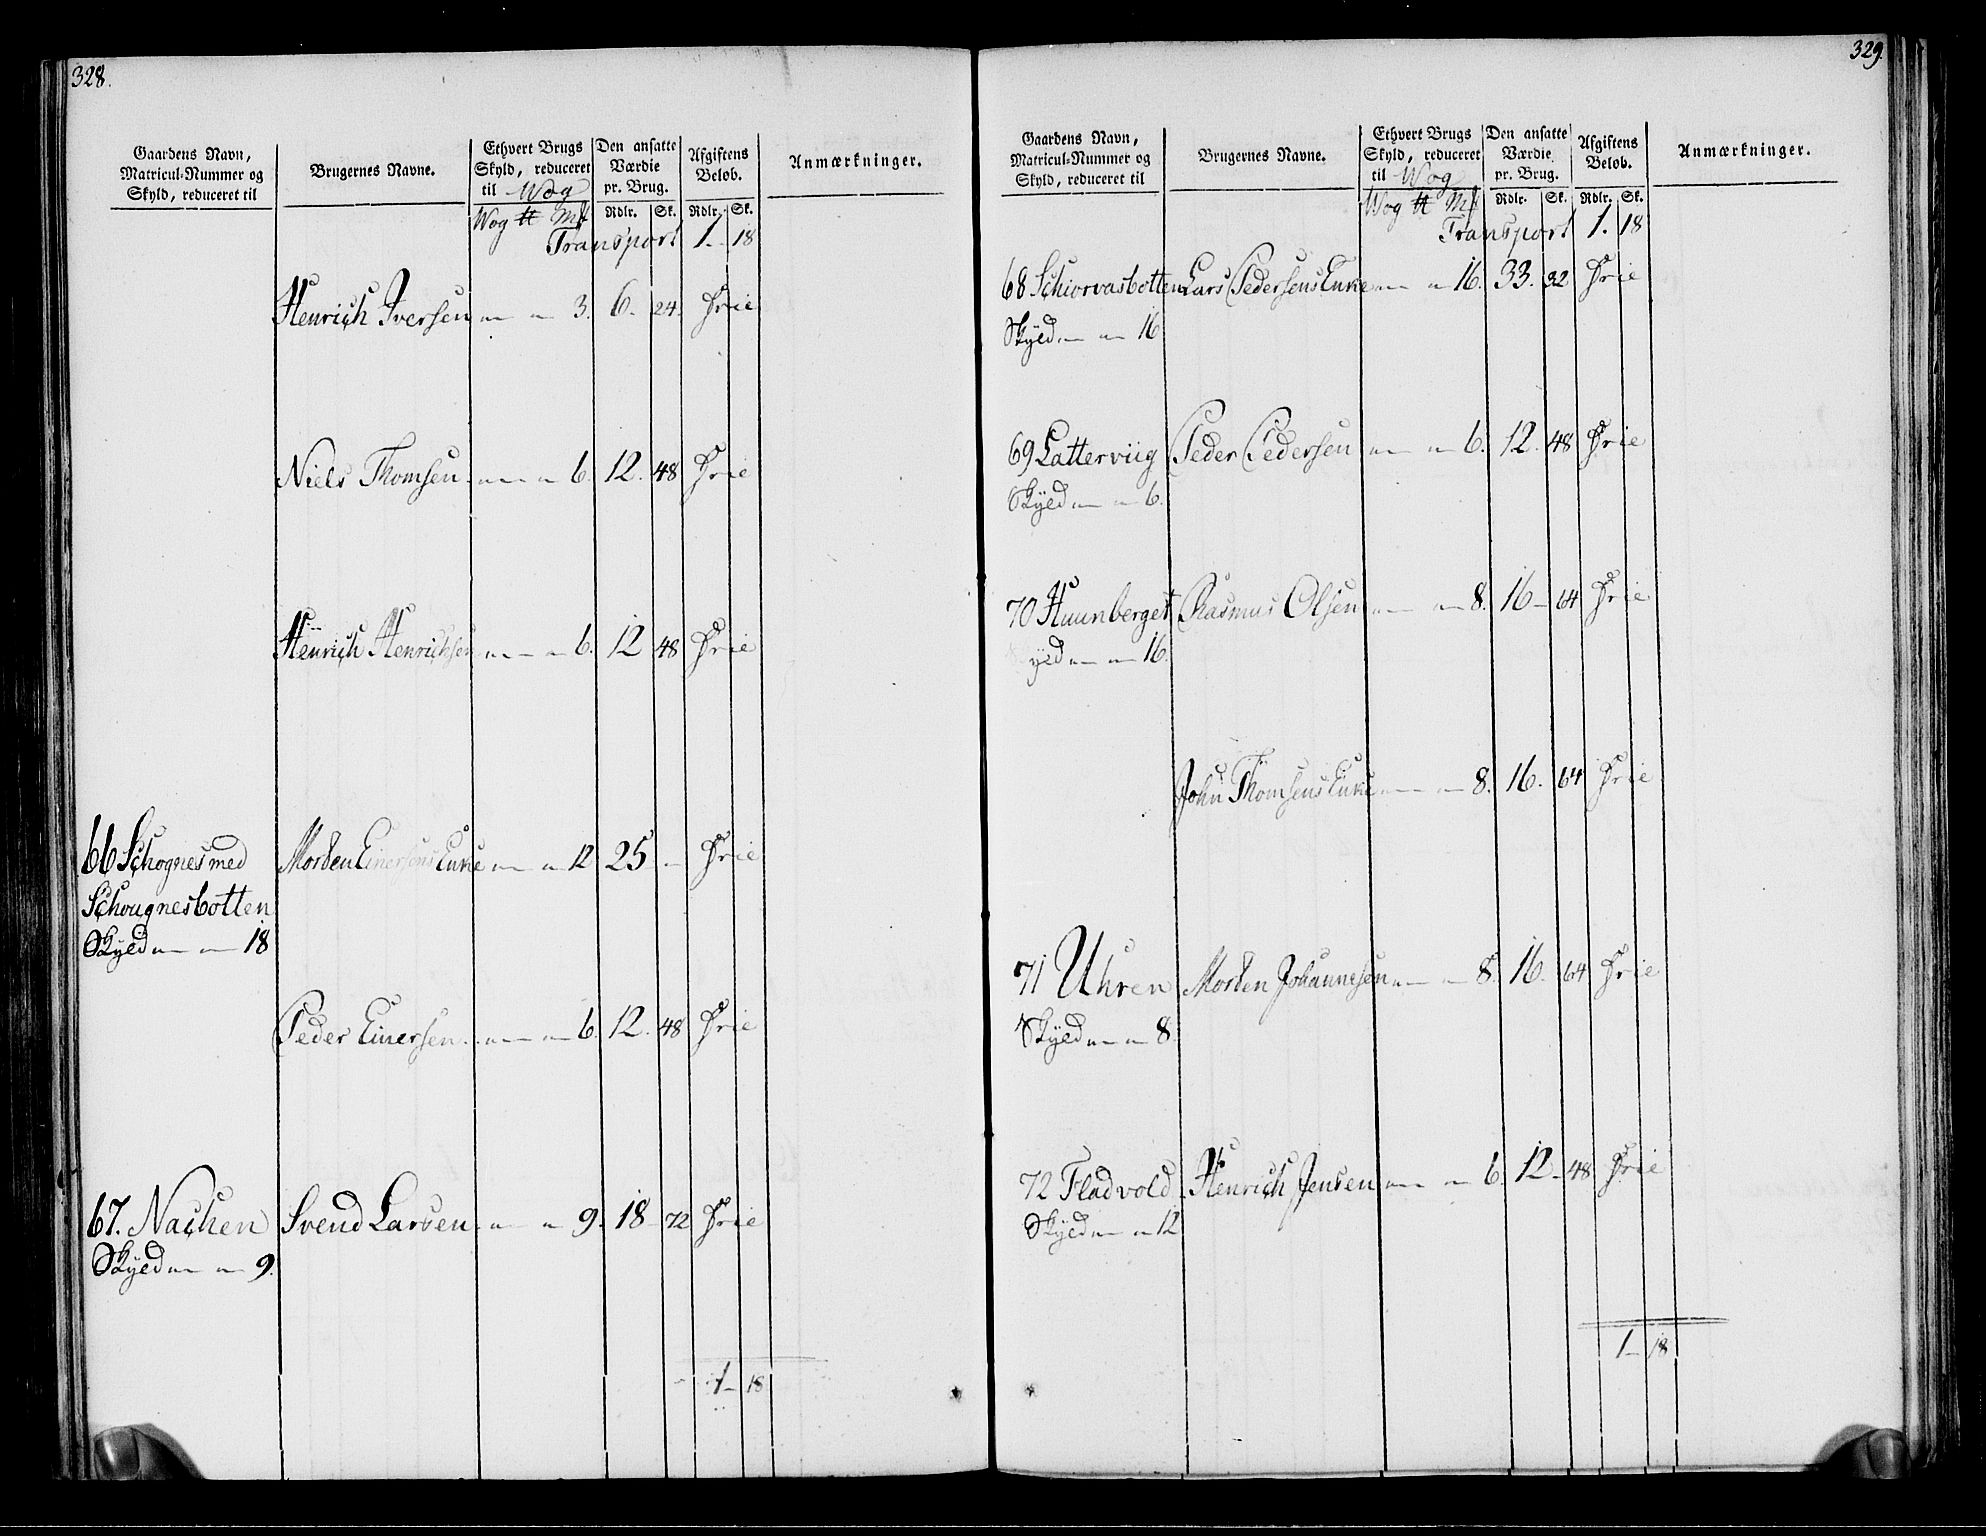 328.
Gaardens Navn, Matricul-Nummer og Skyld, reduceret til
Brugernes Navne.
Ethvert Brugs Skyld, reduceret til Wog
Den ansatte Værdie pr. Brug.
Afgiftens Beløb.
Anmærkninger.
Wog ℔ Mk Rdlr. Sk. Rdlr. Sk.
Transport 1. 18
Henrich Iversen 3. 6. 24. Frie
Niels Thomsen 6. 12. 48 Frie
Henrich Henrichsen 6. 12 48 Frie
66 Schognes med Morten Einersens Enke 12 25 - Frie
Schougnesbotten
Skyld 18
Peder Einersen 6. 12. 48 Frie
67. Nachen Svend Larsen 9. 18 - 72 Frie
Skyld 9.
1 - 18
329.
Gaardens Navn, Matricul-Nummer og Skyld, reduceret til
Brugernes Navne.
Ethvert Brugs Skyld, reduceret til Wog
Den ansatte Værdie pr. Brug.
Afgiftens Beløb.
Anmærkninger.
Wog ℔ Mk Rdlr. Sk. Rdlr. Sk.
Transport 1. 18
68 Schiorvasbotten Lars Pedersens Enke 16. 33. 32 Frie
Skyld 16
69 Latterviig Peder Pedersen 6. 12. 48 Frie
Skyld 6.
70 Huunberget Rasmus Olsen 8. 16 - 64 Frie
Skyld 16.
John Thomsens Enke 8. 16. 64 Frie
71 Uhren Morten Johannesen 8. 16. 64 Frie
Skyld 8.
72 Fladvold Henrich Jensen 6. 12 - 48 Frie
Skyld 12
1 - 18